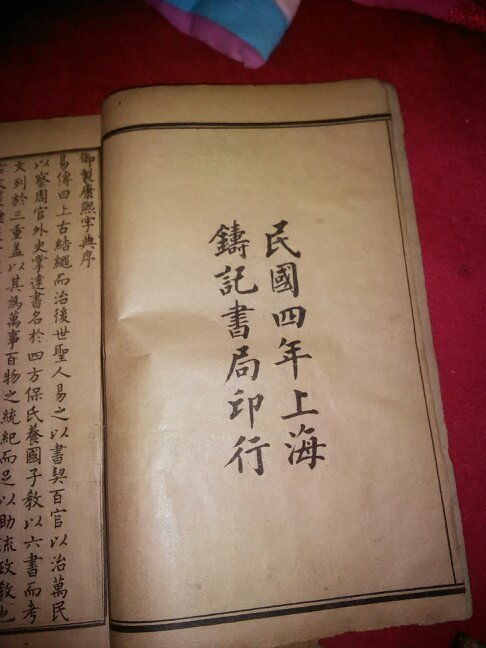 民國四年上海
鑄記書局印行
御製康熙字典序
易傳曰上古結繩而治後世聖人易之以書契百官以治萬民
以察周官外史掌達書名於四方保氏養國子教以六書而考
文列於三重蓋以其為萬事百物之統紀而足以助流政教也